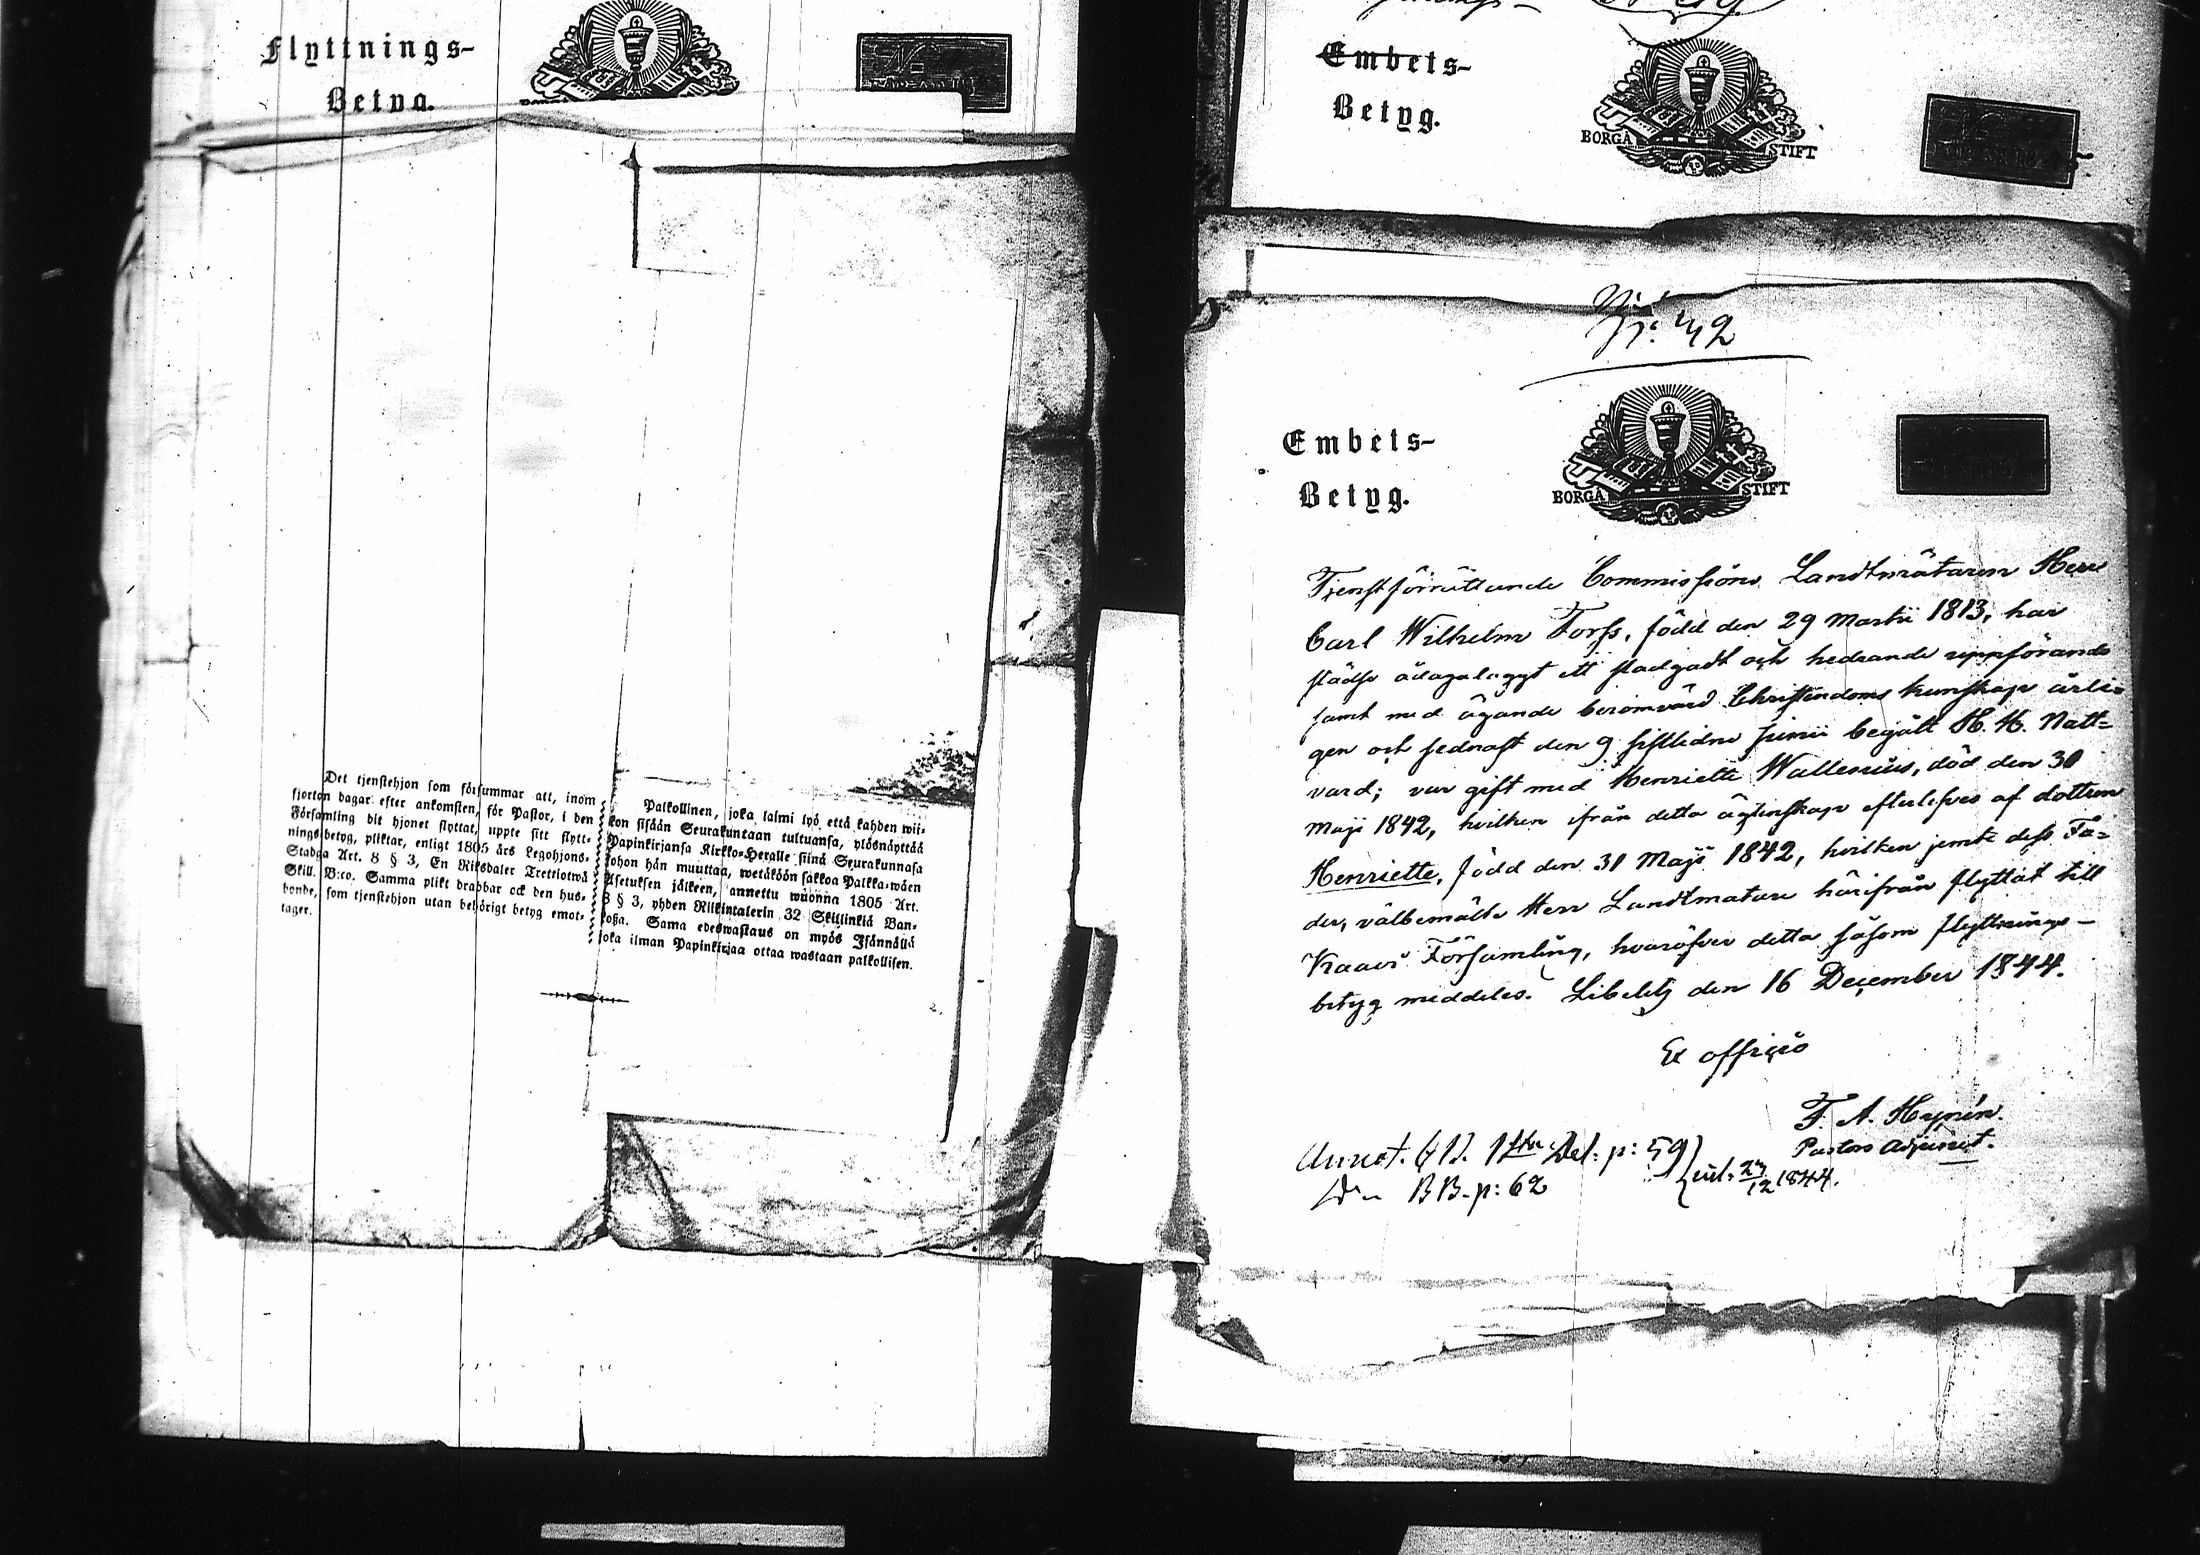 Flyttnings-
Betyg.
Det tjenstehjon som försummar att, inom
fjorton dagar efter ankomsten, för Pastor, i den
Församling dit hjonet flyttat, uppte sitt flytt-
nings betyg, pliktar, enligt 1805 års Legohjons-
Stadga Art. 8 § 3, En Riksdaler Trettiotwå
Skill. B:co. Samma plikt drabbar ock den hus-
bonde, som tjenstehjon utan behörigt betyg emot-
tager.
Palkollinen, joka laimi lyö että kahden wii-
kon sisään Seurakuntaan tultuansa, ylösnäyttää
Papinkirjansa Kirkko-Heralle siinä Seurakunnasa
johon hän muuttaa, wetäköön sakkoa Palkka-wäen
Asetuksen jälkeen, annettu wuonna 1805 Art.
8 § 3, yhden Riikintalerin 32 Skillinkiä Ban-
kosa. Sama edeswastaus on myös Isännällä
joka ilman Papinkirjaa ottaa wastaan palkollisen.
Embets-
Betyg.
BORGÅ STIFT
Nr: 42
Embets-
Betyg.
BORGÅ STIFT
Tjenstförrättande Commissions Landtmätaren Herr
Carl Wilhelm Forss, född den 29 Martii 1813, har
städse ådagalaggt ett stadgadt och hedrande uppförande
samt med ägande berömvärd Christendoms kunskap ärli-
gen och sednast den 9 sistledne Junii begått H. H. Natt-
vard; var gift med Henriette Wallenius, död den 30
Maji 1842, hvilken ifrån detta ägtenskap efterlefves af dottern
Henriette, född den 31 Maji 1842, hvilken jemte dess Fa-
der, välbemälte Herr Landtmätare härifrån flyttat till
Kaavi Församling, hvaröfver detta såsom flyttnings-
betyg meddeles. Libelitz den 16 December 1844.
Ex officio
F. A. Hynén.
Pastors Adjunct.
Annot. 1sta Del. p: 59
BB. p: 62
1844.